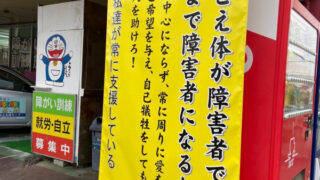 障がい訓練
就労・自立
募集中
とえ体が障害者で
まで障害者になる
中心にならず、常に周りに愛を
希望を与え、自己犠牲をしても
を助けろ!
私達が常に支援している